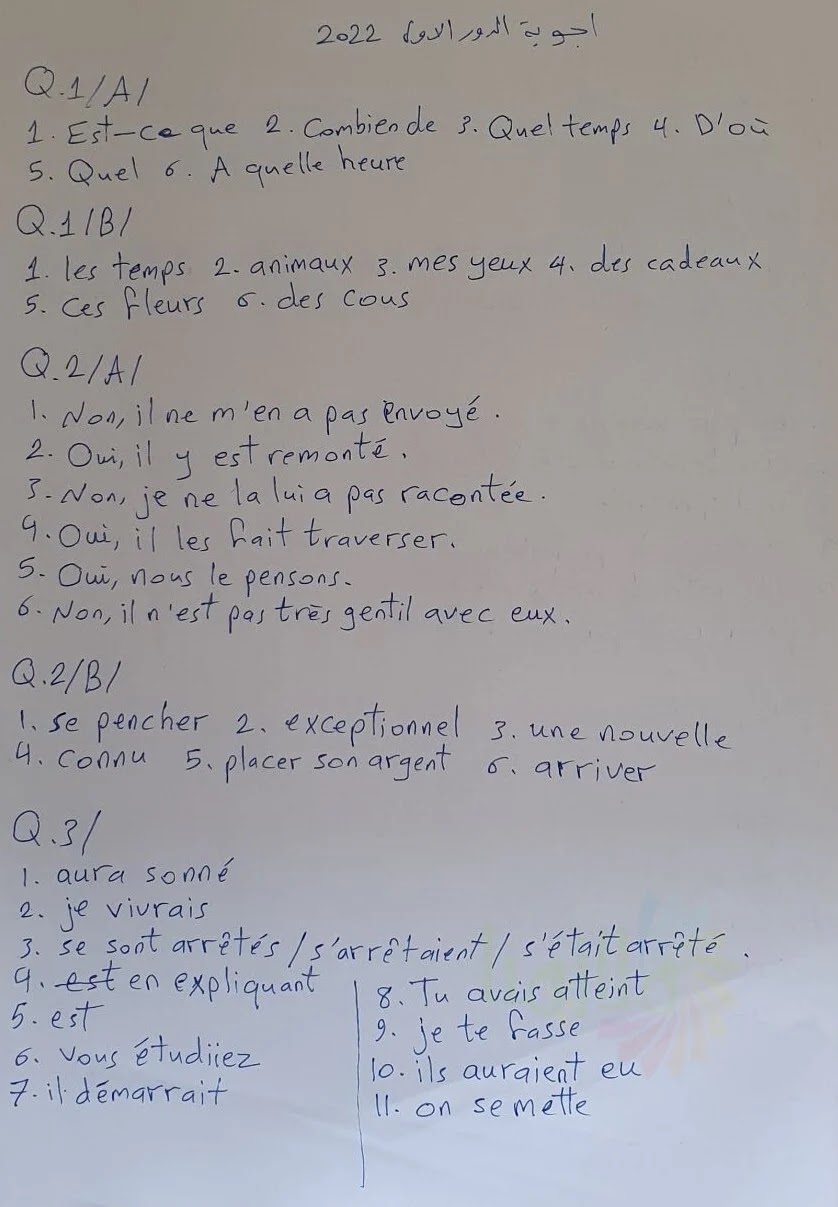 اجوبة الدور الاول 2022
Q.1/A/
1. Est-ce que 2. Combien de 3. Quel temps 4. D'où
5. Quel 6. A quelle heure
Q.1/B/
1. les temps 2. animaux 3. mes yeux 4. des cadeaux
5. ces fleurs 6. des cous
Q.2/A/
1. Non, il ne m'en a pas envoyé.
2. Oui, il y est remonté.
3. Non, je ne la lui a pas racontée.
4. Oui, il les fait traverser.
5. Oui, nous le pensons.
6. Non, il n'est pas très gentil avec eux.
Q.2/B/
1. se pencher 2. exceptionnel 3. une nouvelle
4. connu 5. placer son argent 6. arriver
Q.3/
1. aura sonné
2. je vivrais
3. se sont arrêtés / s'arrêtaient / s'était arrêté.
4. est en expliquant
5. est
6. vous étudiiez
7. il démarrait
8. Tu avais atteint
9. je te fasse
10. ils auraient eu
11. on se mette